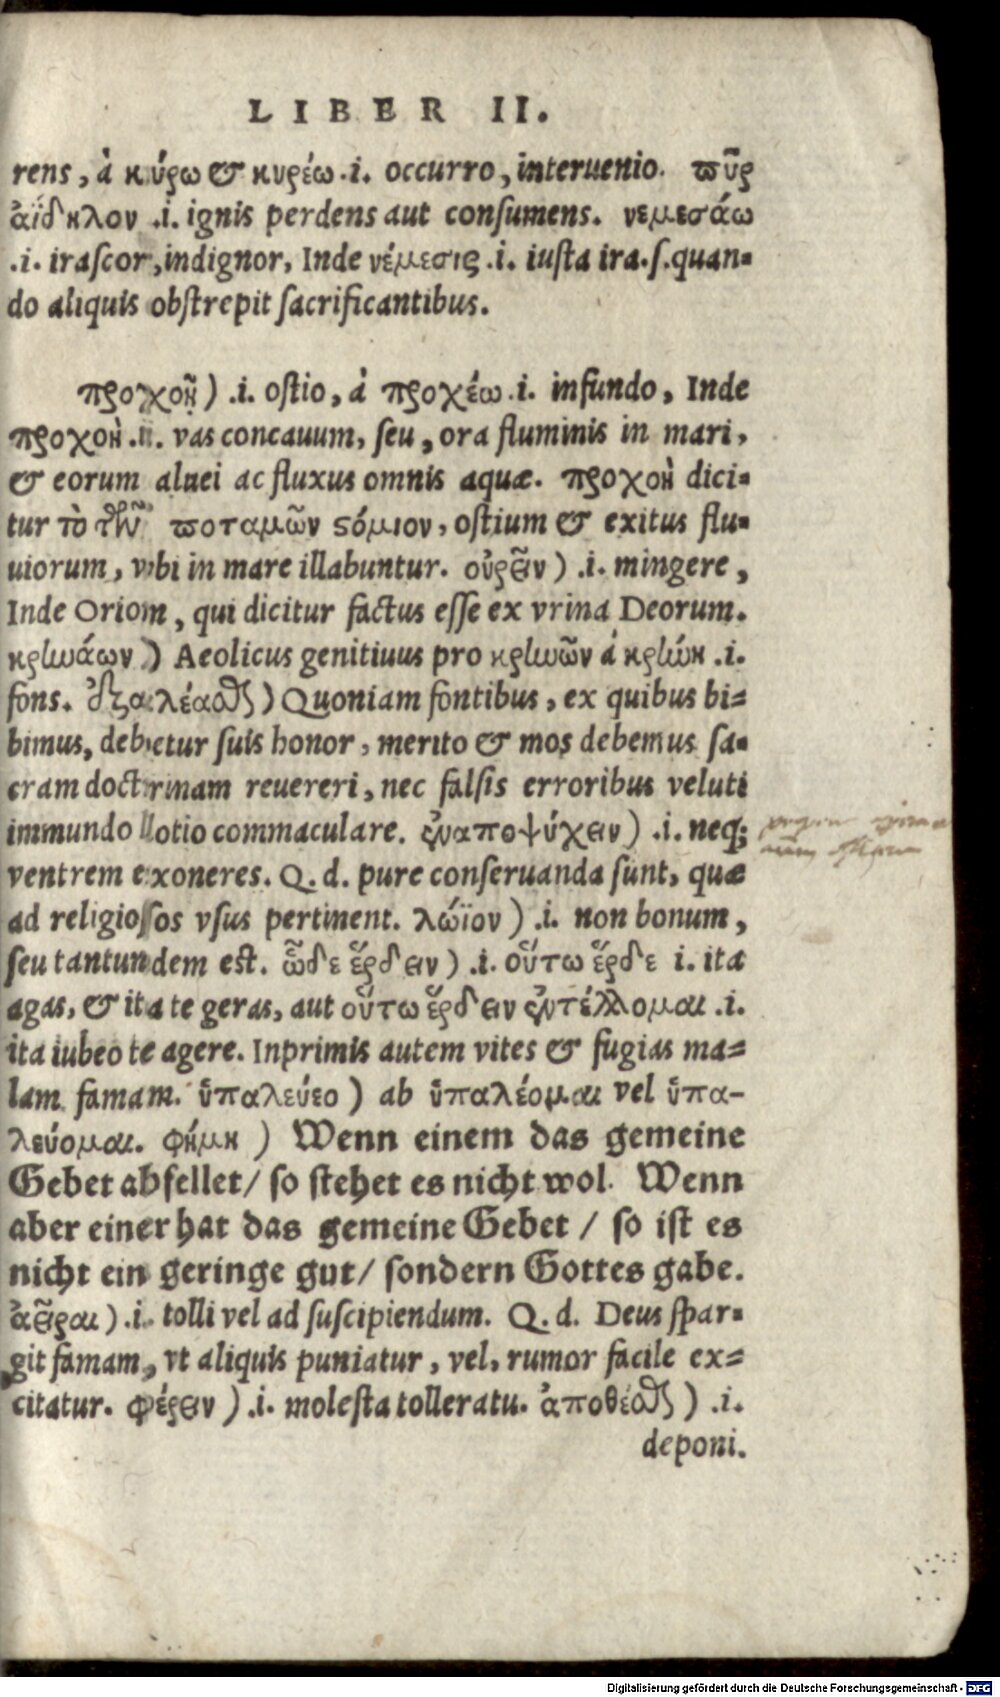 LIBER II.
rens, à κύρω & κυρέω .i. occurro, interuenio. πῦρ
ἀΐδηλον .i. ignis perdens aut consumens. νεμεσάω
.i. irascor, indignor, Inde νέμεσις .i. iusta ira. s. quan-
do aliquis obstrepit sacrificantibus.
προχοῇ) .i. ostio, à προχέω .i. infundo, Inde
προχοὴ .i. vas concauum, seu, ora fluminis in mari,
& eorum aluei ac fluxus omnis aquæ. προχοὴ dici-
tur τὸ τῶν ποταμῶν στόμιον, ostium & exitus flu-
uiorum, vbi in mare illabuntur. οὐρεῖν) .i. mingere,
Inde Oriom, qui dicitur factus esse ex vrina Deorum.
κρηνάων) Aeolicus genitiuus pro κρηνῶν à κρήνη .i.
fons. ἐξαλέασθαι) Quoniam fontibus, ex quibus bi-
bimus, debetur suis honor, merito & nos debemus sa-
cram doctrinam reuereri, nec falsis erroribus veluti
immundo lotio commaculare. ἐναποψύχειν) .i. neq;
ventrem exoneres. Q. d. pure conseruanda sunt, quæ
ad religiosos vsus pertinent. λώϊον) .i. non bonum,
seu tantundem est. ὧδε ἕρδειν) .i. οὕτω ἕρδε i. ita
agas, & ita te geras, aut οὕτω ἕρδειν ἐντέλλομαι .i.
ita iubeo te agere. Inprimis autem vites & fugias ma-
lam famam. ὑπαλεύεο) ab ὑπαλέομαι vel ὑπα-
λεύομαι. φήμη) Wenn einem das gemeine
Gebet abfellet/ so stehet es nicht wol. Wenn
aber einer hat das gemeine Gebet / so ist es
nicht ein geringe gut/ sondern Gottes gabe.
ἀεῖραι) .i. tolli vel ad suscipiendum. Q. d. Deus spar-
git famam, vt aliquis puniatur, vel, rumor facile ex-
citatur. φέρειν) .i. molesta tolleratu. ἀποθέσθαι) .i.
deponi.
Digitalisierung gefördert durch die Deutsche Forschungsgemeinschaft - DFG